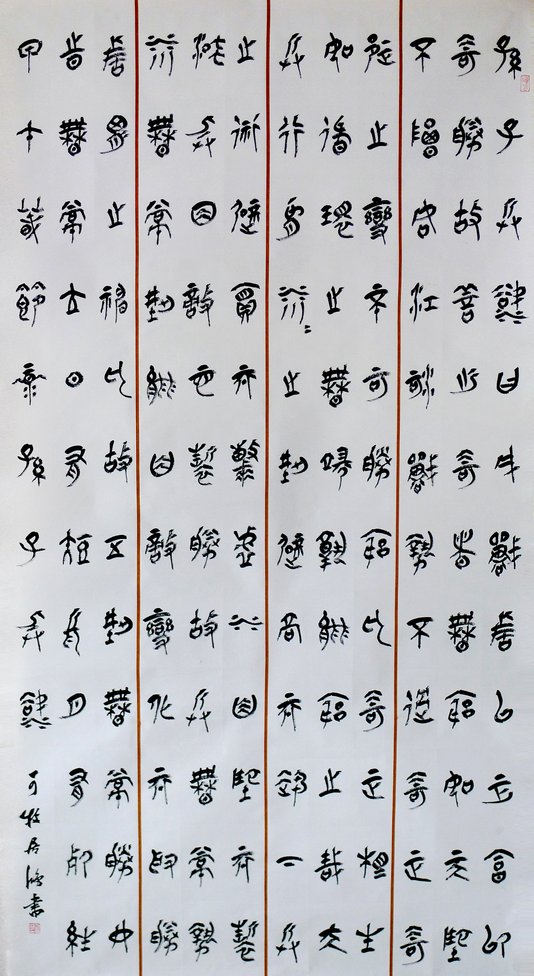 孫子兵法曰凡戰者以正合以
奇勝故善出奇者無窮如天地
不竭如江河戰勢不過奇正奇
正之變不可勝窮也奇正相生
如循環之無端孰能窮之哉夫
兵行象水=之刑避高而趨下兵
之行避實而擊虛水因地而制
流兵因敵而制勝故兵無常勢
水無常刑能因敵變化而取勝
者謂之神也故五刑無常勝四
時無常立日有短長月有死生
甲午歲節錄孫子兵法
可牧居